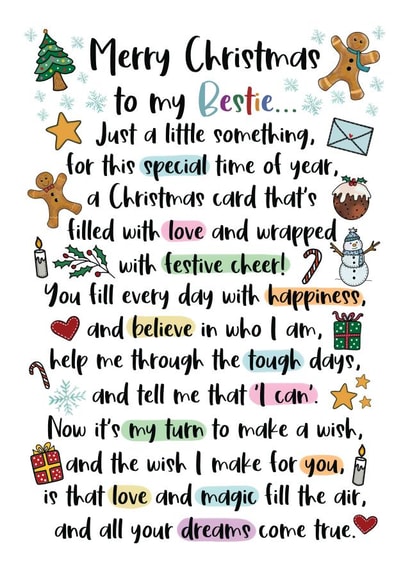 Merry Christmas
to my Bestie...
Just a little something,
for this special time of year,
a Christmas card that's
filled with love and wrapped
with festive cheer!
You fill every day with happiness,
and believe in who I am,
help me through the tough days,
and tell me that 'I can'.
Now it's my turn to make a wish,
and the wish I make for you,
is that love and magic fill the air,
and all your dreams come true.